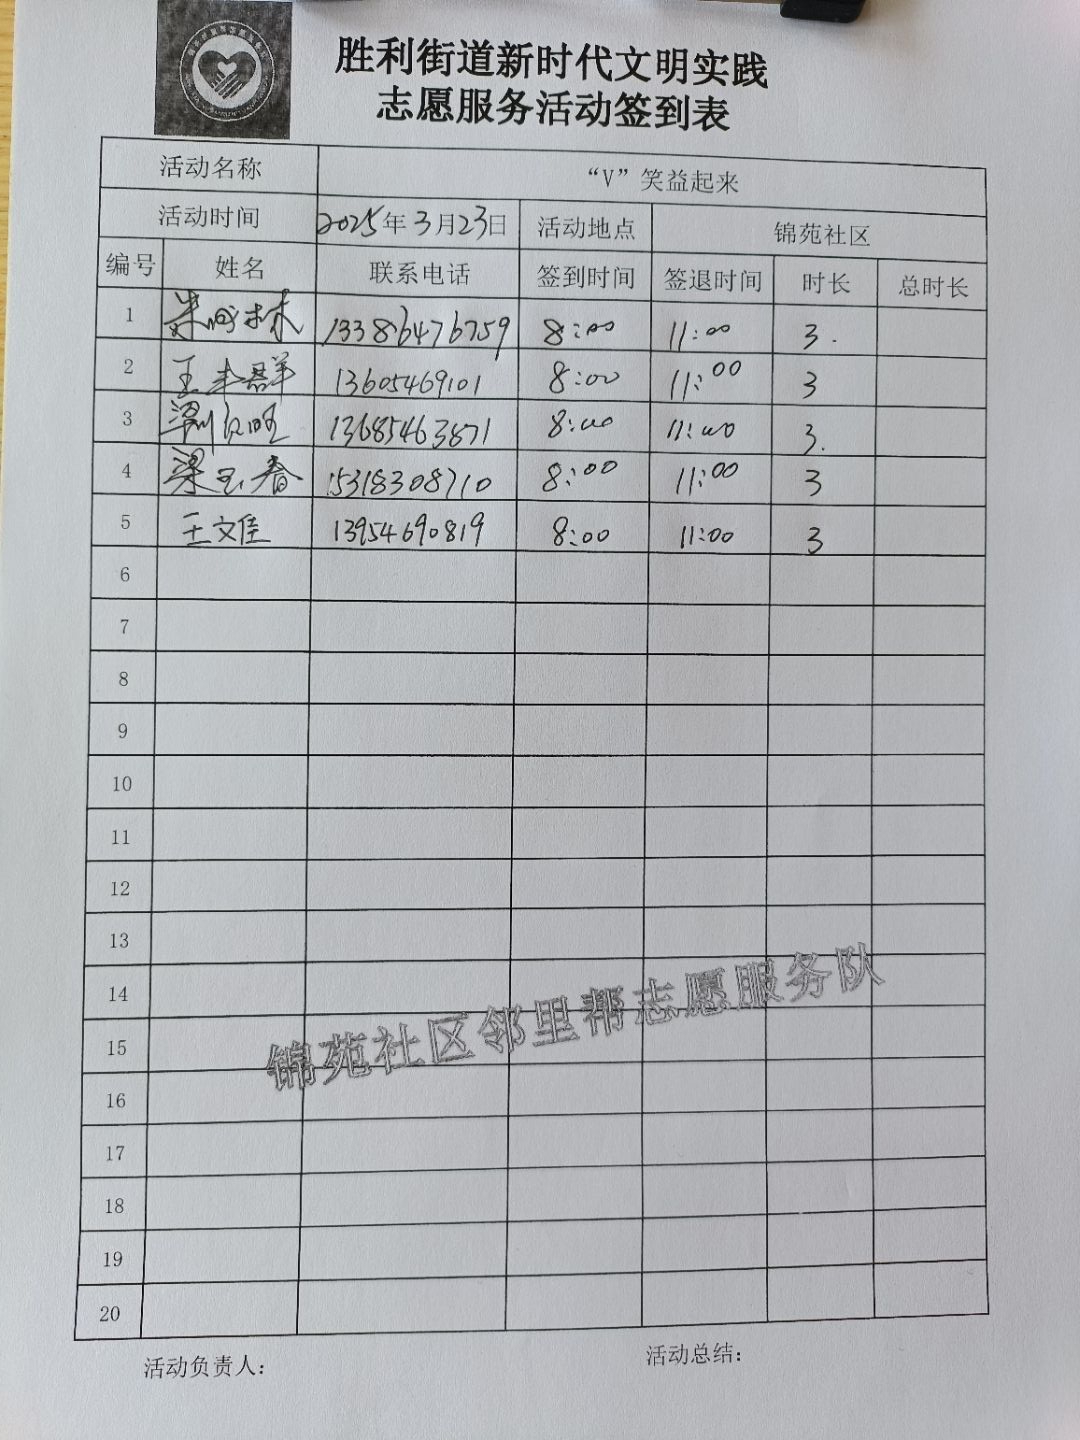 胜利街道新时代文明实践
志愿服务活动签到表
活动名称 “V”笑益起来
活动时间 2025年3月23日 活动地点 锦苑社区
编号 姓名 联系电话 签到时间 签退时间 时长 总时长
1 13386476759 8:00 11:00 3.
2 王 群 13605469101 8:00 11:00 3
3 旺 13685463871 8:00 11:00 3.
4 梁玉春 15318308710 8:00 11:00 3
5 王文佳 13954690819 8:00 11:00 3
6
7
8
9
10
11
12
13
14
15
16
17
18
19
20
锦苑社区邻里帮志愿服务队
活动负责人： 活动总结：